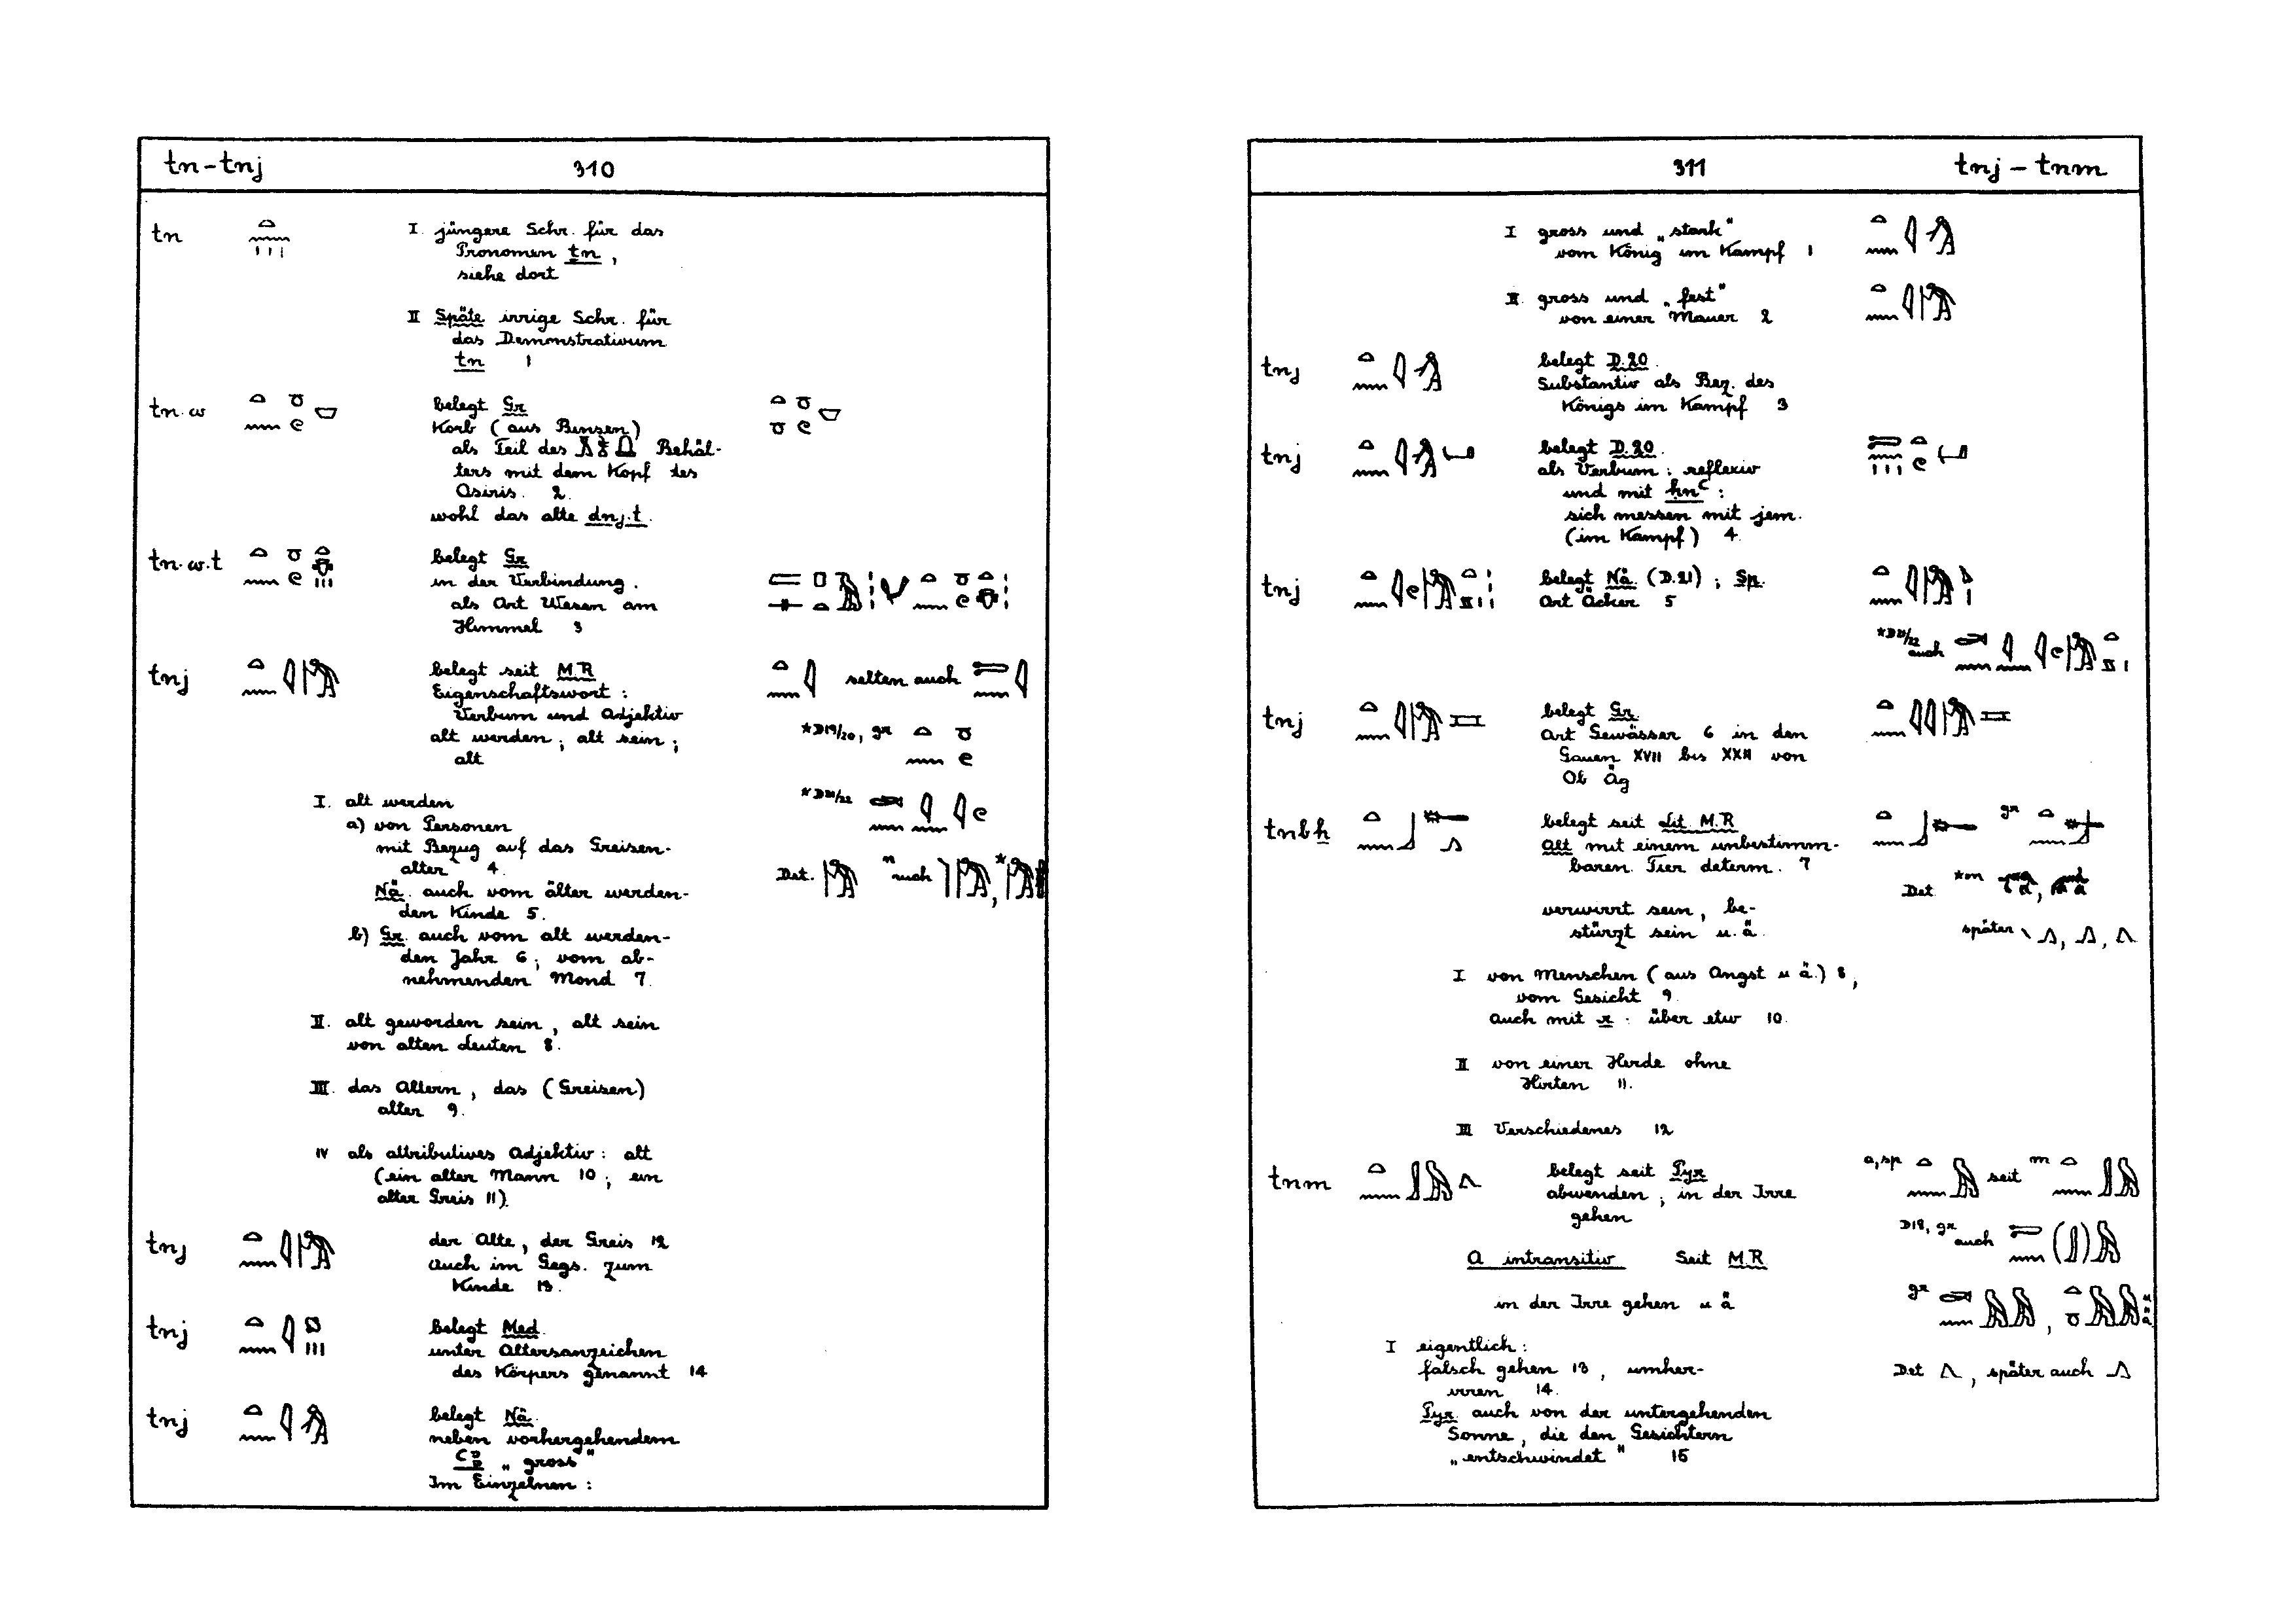 tn – tnj 310
tn I. jüngere Schr. für das
Pronomen ṯn,
siehe dort
II Späte irrige Schr. für
das Demonstrativum
tn 1
tn.w belegt Gr
Korb (aus Binsen)
als Teil des Behäl-
ters mit dem Kopf des
Osiris. 2.
wohl das alte dnj.t.
tn.w.t belegt Gr
in der Verbindung.
als Art Wesen am
Himmel 3
tnj belegt seit M.R selten auch
Eigenschaftswort:
Verbum und Adjektiv
alt werden; alt sein; *D19/20, gr
alt
I. alt werden *D21/22
a) von Personen
mit Bezug auf das Greisen-
alter 4. Det. n auch , *
Nä. auch vom älter werden-
den Kinde 5.
b) Gr. auch vom alt werden-
den Jahr 6; vom ab-
nehmenden Mond 7.
II. alt geworden sein, alt sein
von alten Leuten 8.
III. das Altern, das (Greisen)
alter 9.
IV als attributives Adjektiv: alt
(ein alter Mann 10; ein
alter Greis 11).
tnj der Alte, der Greis 12
Auch im Gegs. zum
Kinde 13.
tnj belegt Med.
unter Altersanzeichen
des Körpers genannt 14
tnj belegt Nä.
neben vorhergehendem
ꜥꜣ „gross"
Im Einzelnen:
311 tnj – tnm
I gross und „stark"
vom König im Kampf 1
II. gross und „fest"
von einer Mauer 2
tnj belegt D.20.
Substantiv als Bez. des
Königs im Kampf 3
tnj belegt D.20.
als Verbum: reflexiv
und mit ḥnꜥ:
sich messen mit jem.
(im Kampf) 4.
tnj belegt Nä. (D.21); Sp.
Art Äcker 5
*D21/22 auch
tnj belegt Gr.
Art Gewässer 6 in den
Gauen XVII bis XXII von
Ob Äg
tnbḫ belegt seit Lit. M.R gr
Alt mit einem unbestimm-
baren Tier determ. 7
Det *m ,
verwirrt sein, be-
stürzt sein u.ä. später , ,
I von Menschen (aus Angst u ä.) 8,
vom Gesicht 9.
Auch mit r: über etw 10.
II von einer Herde ohne
Hirten 11.
III Verschiedenes 12
tnm belegt seit Pyr a, sp seit m
abwenden; in der Irre
gehen D18, gr auch
A intransitiv Seit M.R
in der Irre gehen u ä gr ,
I eigentlich:
falsch gehen 13, umher- Det , später auch
irren 14.
Pyr. auch von der untergehenden
Sonne, die den Gesichtern
„entschwindet" 15